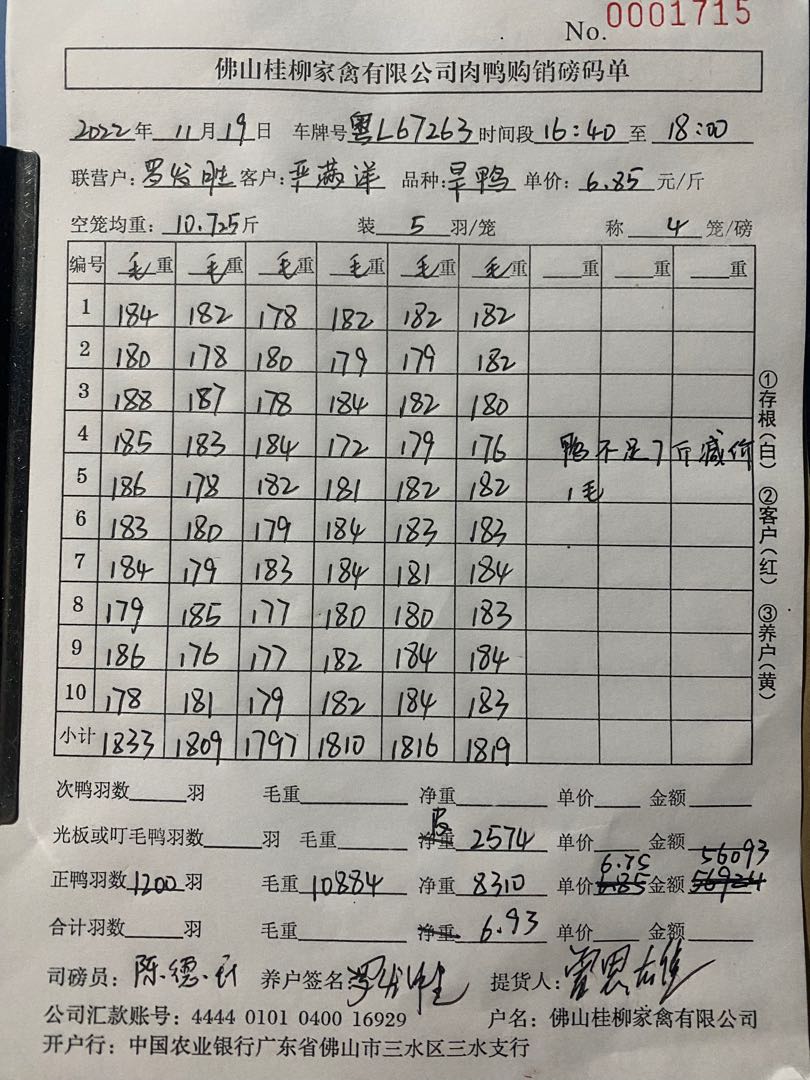 No. 0001715
佛山桂柳家禽有限公司肉鸭购销磅码单
2022年 11月19日 车牌号粤L67263时间段16:40至 18:00
联营户:罗发胜 客户:严满洋 品种:旱鸭 单价:6.85元/斤
空笼均重:10.725斤 装 5 羽/笼 称 4 笼/磅
编号 毛重 毛重 毛重 毛重 毛重 毛重 重 重 重
1 184 182 178 182 182 182
2 180 178 180 179 179 182
3 188 187 178 184 182 180
4 185 183 184 172 179 176 鸭不足7斤减价
5 186 178 182 181 182 182 1毛
6 183 180 179 184 183 183
7 184 179 183 184 181 184
8 179 185 177 180 180 183
9 186 176 177 182 184 184
10 178 181 179 182 184 183
小计 1833 1809 1797 1810 1816 1819
①存根(白) ②客户(红) ③养户(黄)
次鸭羽数 羽 毛重 净重 单价 金额
光板或叮毛鸭羽数 羽 毛重 净重 皮 2574 单价 金额
6.75 56093
正鸭羽数1200羽 毛重10884 净重 8310 单价6.85金额56924
合计羽数 羽 毛重 净重 6.93 单价 金额
司磅员:陈德 养户签名 提货人:
公司汇款账号:4444 0101 0400 16929 户名:佛山桂柳家禽有限公司
开户行:中国农业银行广东省佛山市三水区三水支行